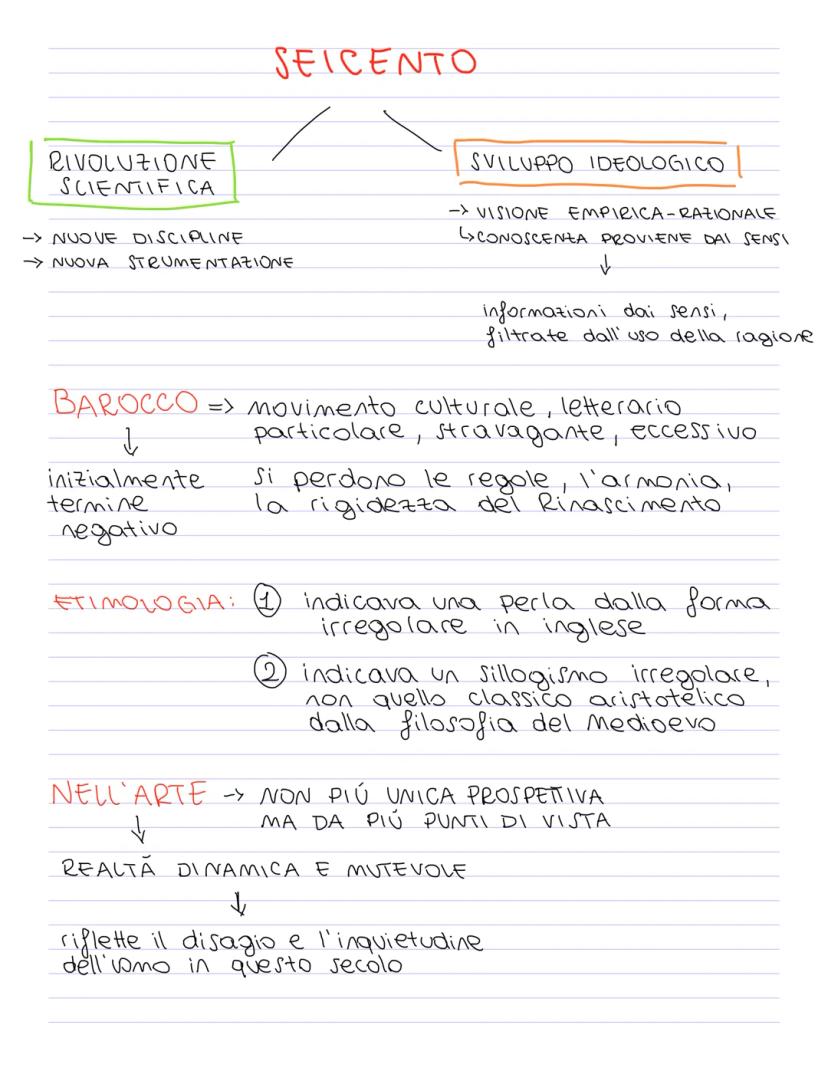 SEICENTO
RIVOLUZIONE
SCIENTIFICA
→ NUOVE DISCIPLINE
→ NUOVA STRUMENTAZIONE
SVILUPPO IDEOLOGICO
→ VISIONE EMPIRICA-RAZIONALE
↳ CONOSCENZA PROVIENE DAI SENSI
↓
informazioni dai sensi,
filtrate dall'uso della ragione
BAROCCO => movimento culturale, letterario
particolare, stravagante, eccessivo
↓
inizialmente
termine
negativo
Si perdono le regole, l'armonia,
la rigidezza del Rinascimento
ETIMOLOGIA: ① indicava una perla dalla forma
irregolare in inglese
② indicava un sillogismo irregolare,
non quello classico aristotelico
dalla filosofia del Medioevo
NELL'ARTE → NON PIÚ UNICA PROSPETTIVA
MA DA PIÚ PUNTI DI VISTA
↓
REALTÀ DINAMICA E MUTEVOLE
↓
riflette il disagio e l'inquietudine
dell'uomo in questo secolo